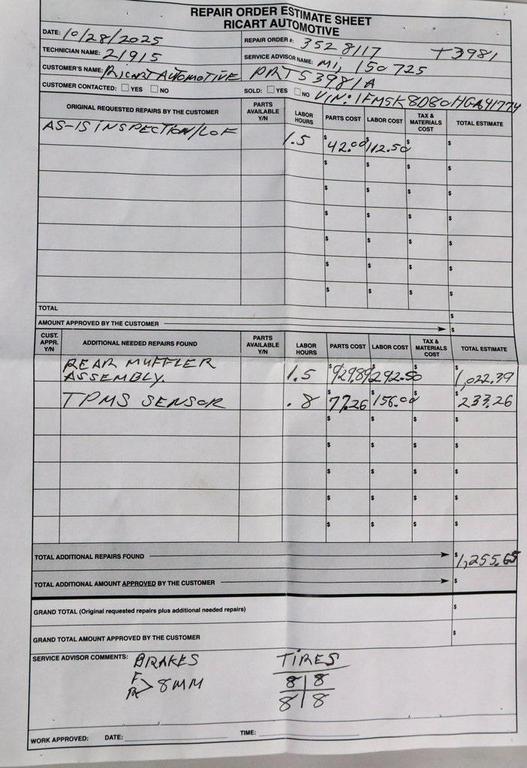 REPAIR ORDER ESTIMATE SHEET
RICART AUTOMOTIVE
DATE: 10/28/2025 REPAIR ORDER #: 3528117 T3981
TECHNICIAN NAME: 21915 SERVICE ADVISOR NAME: MI, 150725
CUSTOMER'S NAME: RICART AUTOMOTIVE PRT53981A
CUSTOMER CONTACTED: YES NO SOLD: YES NO VIN: 1FM5K8D80HGA91774
ORIGINAL REQUESTED REPAIRS BY THE CUSTOMER PARTS AVAILABLE Y/N LABOR HOURS PARTS COST LABOR COST TAX & MATERIALS COST TOTAL ESTIMATE
AS-IS INSPECTION/LOF 1.5 $42.00 $112.50 $ $
$ $ $ $
$ $ $ $
$ $ $ $
$ $ $ $
$ $ $ $
$ $ $ $
TOTAL $
AMOUNT APPROVED BY THE CUSTOMER $
CUST. APPR. Y/N ADDITIONAL NEEDED REPAIRS FOUND PARTS AVAILABLE Y/N LABOR HOURS PARTS COST LABOR COST TAX & MATERIALS COST TOTAL ESTIMATE
REAR MUFFLER
ASSEMBLY. 1.5 $929.89 $292.50 $ $1,022.39
TPMS SENSOR .8 $77.26 $156.00 $ $233.26
$ $ $ $
$ $ $ $
$ $ $ $
$ $ $ $
$ $ $ $
TOTAL ADDITIONAL REPAIRS FOUND $1,255.65
TOTAL ADDITIONAL AMOUNT APPROVED BY THE CUSTOMER $
GRAND TOTAL (Original requested repairs plus additional needed repairs) $
GRAND TOTAL AMOUNT APPROVED BY THE CUSTOMER $
SERVICE ADVISOR COMMENTS: BRAKES TIRES
F
R > 8MM 8 | 8
8 | 8
WORK APPROVED: DATE: TIME: